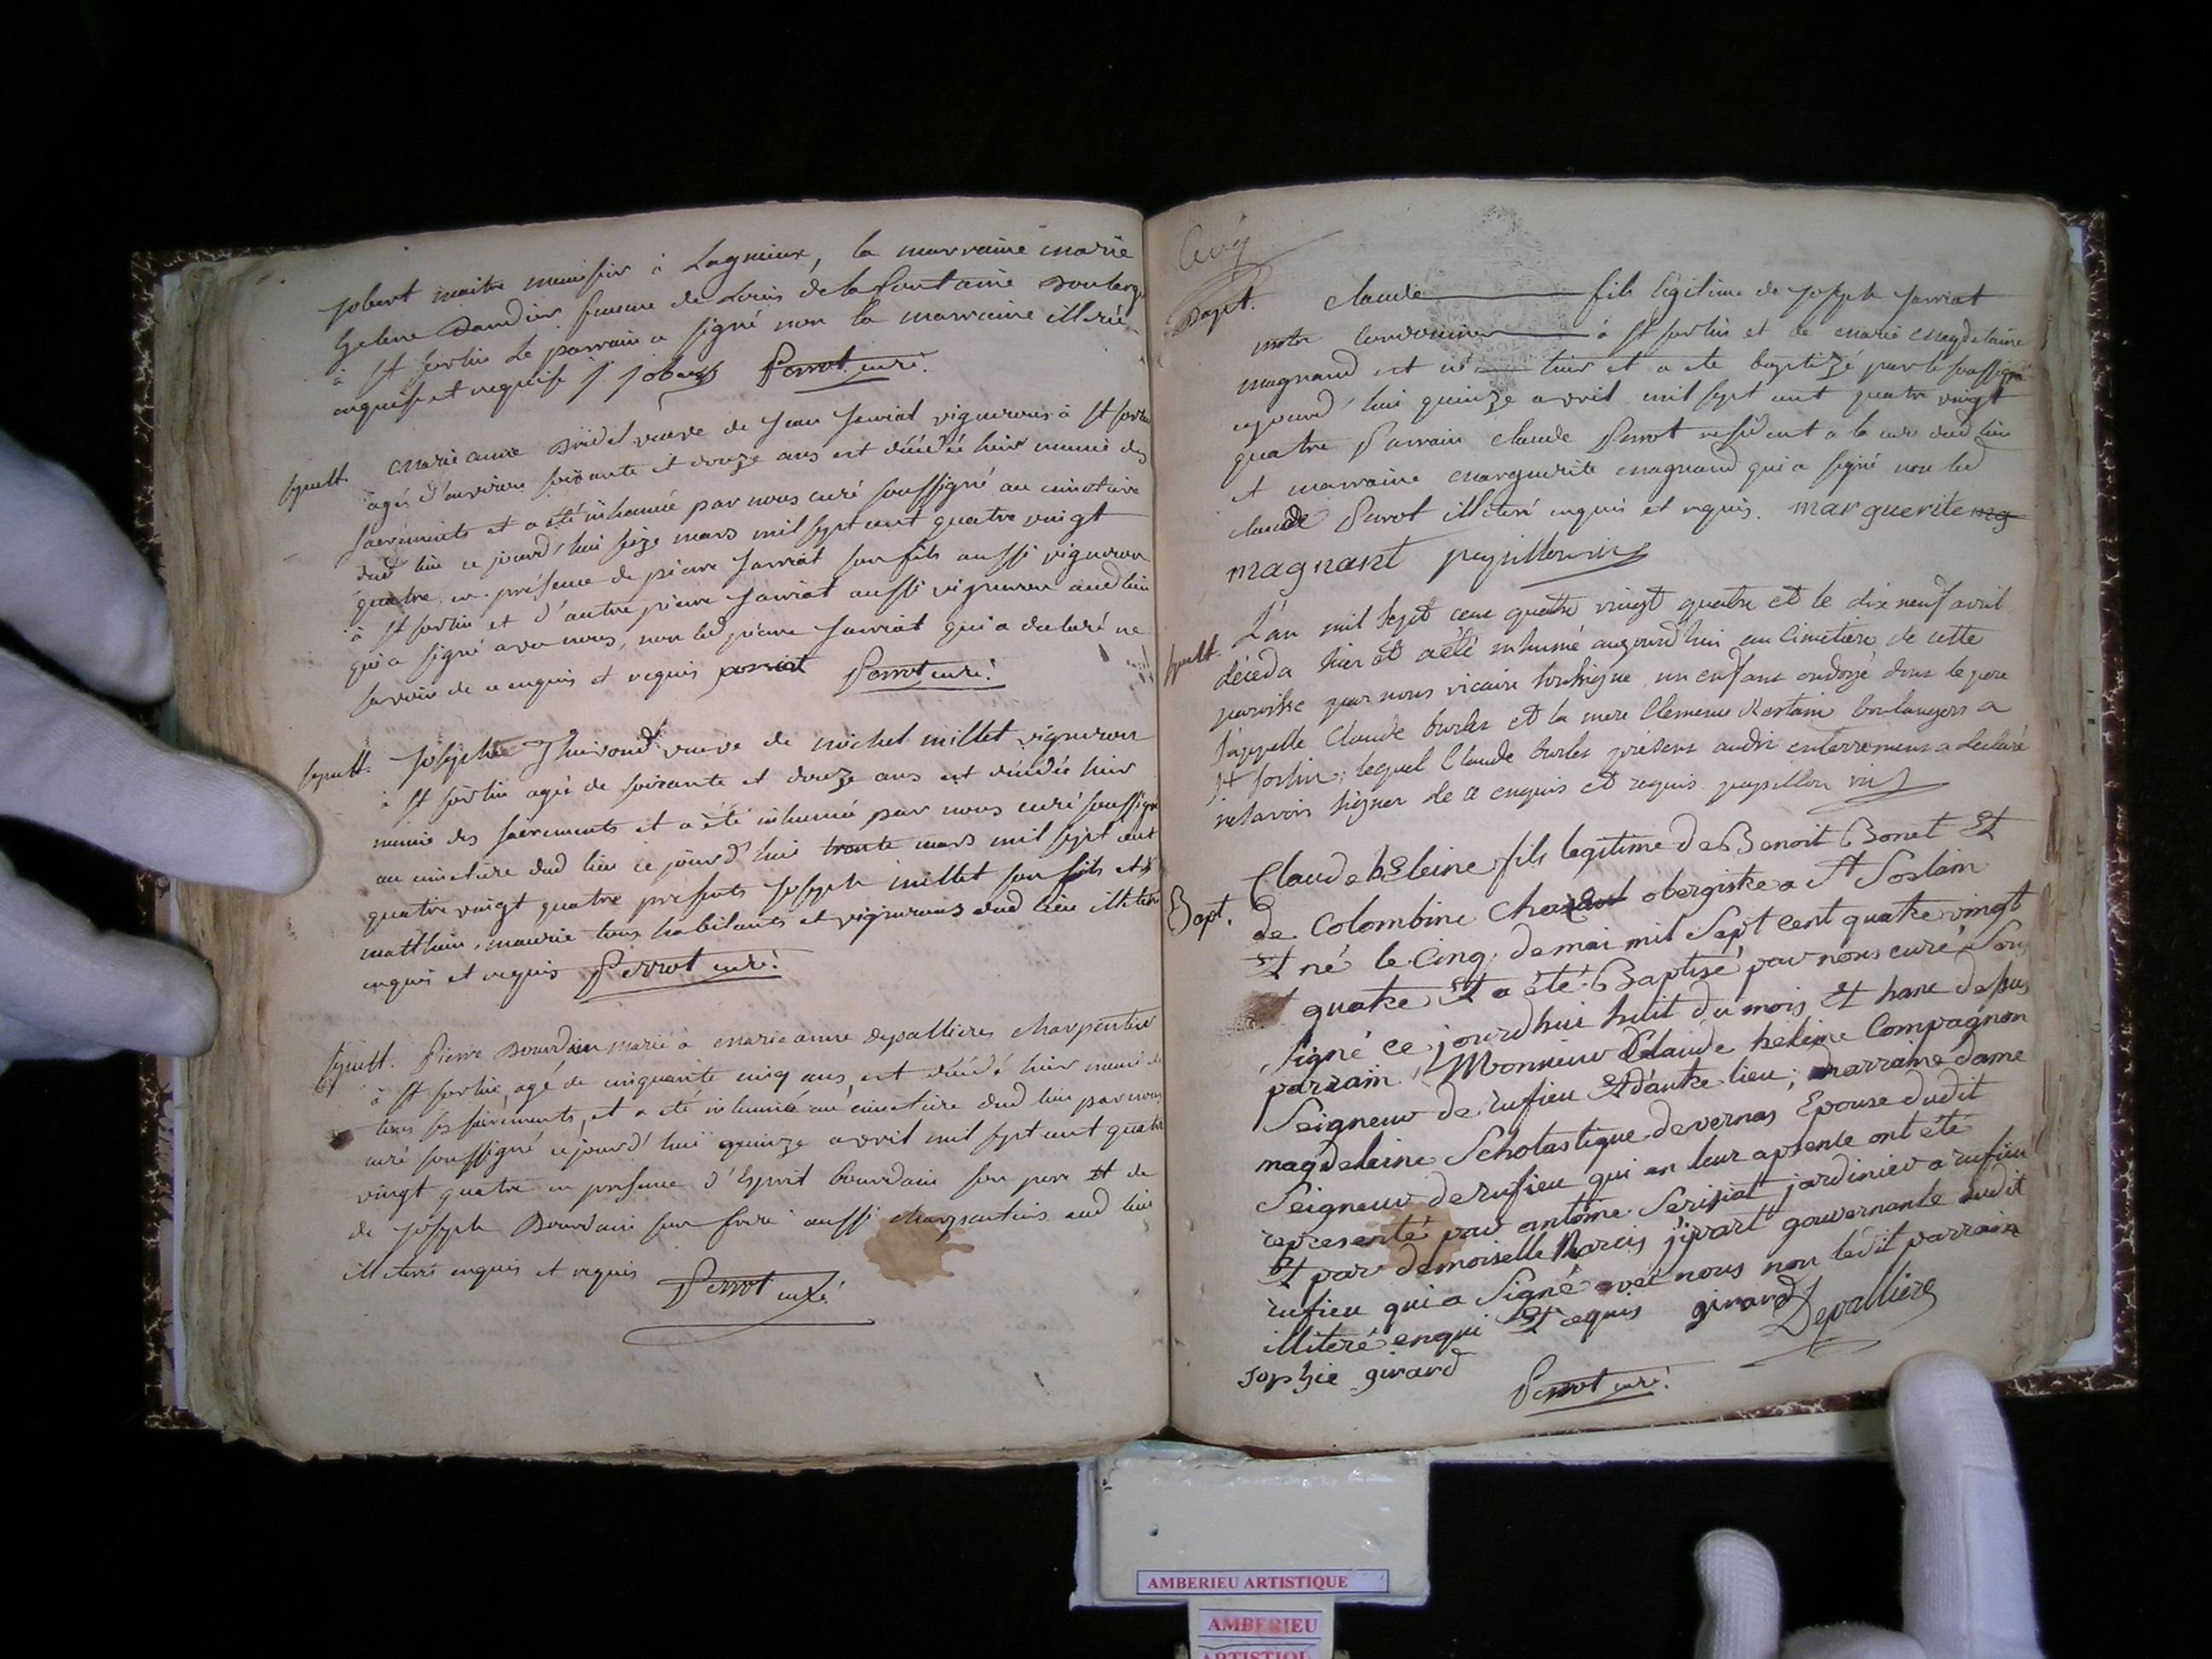 jobert maitre menusier à Lagnieux, la marraine marie
femme de Louis de la fontaine
à st sorlin Le parrain a signé non la marraine illitérée
enquise et requise j jobert Perrot curé.
sepult. marie anne veuve de jean sarriat vigneron à st sorlin
agée d'environ soixante et douze ans est décédée hier munie des
sacrements et a été inhumée par nous curé soussigné au cimetiere
dud lieu ce jourd'hui seize mars mil sept cent quatre vingt
quatre en présence de pierre sarriat son fils aussi vigneron
à st sorlin et d'autre pierre sarriat aussi vigneron aud lieu
qui a signé avec nous, non led pierre sarriat qui a declaré ne
savoir de ce enquis et requis Perrot curé.
sepult. josephe Thevond veuve de michel millet vigneron
à st sorlin agée de soixante et douze ans est décédée hier
munie des sacrements et a été inhumée par nous curé soussigné
au cimetiere dud lieu ce jourd'hui trente mars mil sept cent
quatre vingt quatre presents joseph millet son fils et
matthieu, maurie tous habitants et vignerons dud lieu illiterés
enquis et requis Perrot curé.
sepult. Pierre Bourdin marié à marie anne depallieres charpentier
à st sorlin, agé de cinquante cinq ans, est décédé hier muni de
tous ses sacrements, et a été inhumé au cimetiere dud lieu par nous
curé soussigné ce jourd'hui quinze avril mil sept cent quatre
vingt quatre en presence d'Esprit bourdain son pere et de
de joseph Bourdain son frere aussi charpentiers aud lieu
illiterés enquis et requis Perrot curé
Bapt. claude fils légitime de joseph sarriat
à st sorlin et de marie magdelaine
magnand est né hier et a eté baptizé par le soussigné
aujourd'hui quinze avril mil sept cent quatre vingt
quatre Parrain claude Perrot résident a la cure dud lieu
et marraine marguerite magnand qui a signé non led
claude Perrot illiteré enquis et requis. marguerite mg
magnant papillon vic
sepult. L'an mil sept cent quatre vingt quatre et le dix neuf avril
déceda hier et a été inhumé aujourd'hui au cimetiere de cette
paroisse par nous vicaire soussigné un enfant ondoyé dont le pere
s'appelle Claude burlet et la mere Clemence boulangers a
st sorlin; lequel Claude burlet présent audit enterrement a declaré
ne savoir signer de ce enquis et requis papillon vic
Claude heleine fils legitime de Benoit Bonet Et
Bapt. de Colombine obergiste a St Sorlain
Et né le Cinq de mai mil Sept cent quatre vingt
quatre Et a été Baptisé par nous curé Sous
Signé ce jourdhui huit du mois Et hane desus
parrain, Monsieur Claude heleine Compagnon
Seigneur de rufieu Et d'autre lieu; marraine dame
magdeleine Scholastique de vernas Epouse dudit
Seigneur de rufieu qui en leur absence ont été
representé par antoine Serisiat jardinier a rufieu
Et par demoiselle gouvernante dudit
rufieu qui a Signé avec nous non ledit parrain
illiteré enqui Et requis girard Depalliere
sophie girard
Perrot curé.
AMBERIEU ARTISTIQUE
AMBERIEU
ARTISTIQUE